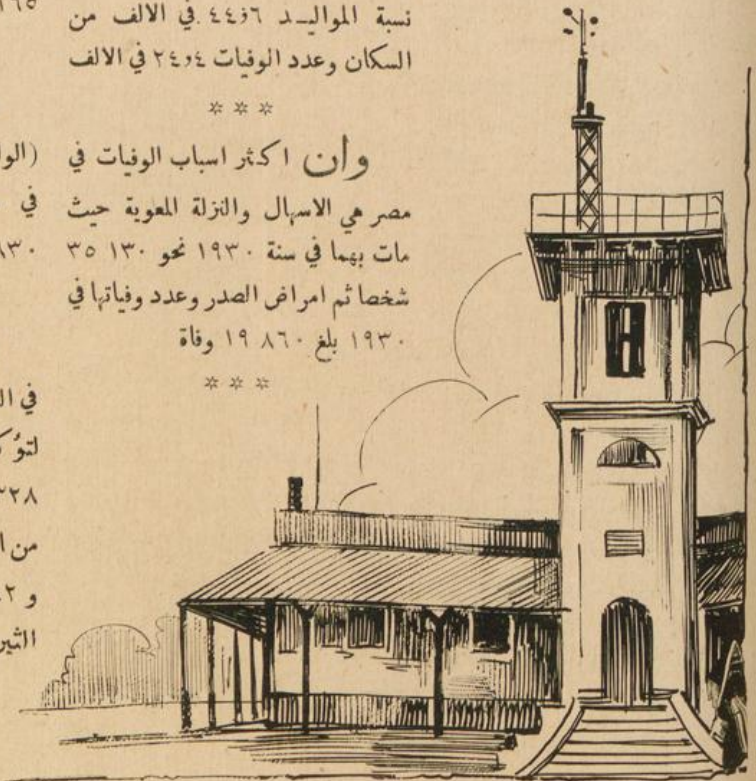 نسبة المواليـد ٤٤٫٦ في الالف من
السكان وعدد الوفيات ٢٤٫٤ في الالف
وان اكثر اسباب الوفيات في
مصر هي الاسهال والنزلة المعوية حيث
مات بهما في سنة ١٩٣٠ نحو ١٣٠ ٣٥
شخصا ثم امراض الصدر وعدد وفياتها في
١٩٣٠ بلغ ٨٦٠ ١٩ وفاة
في
من
و